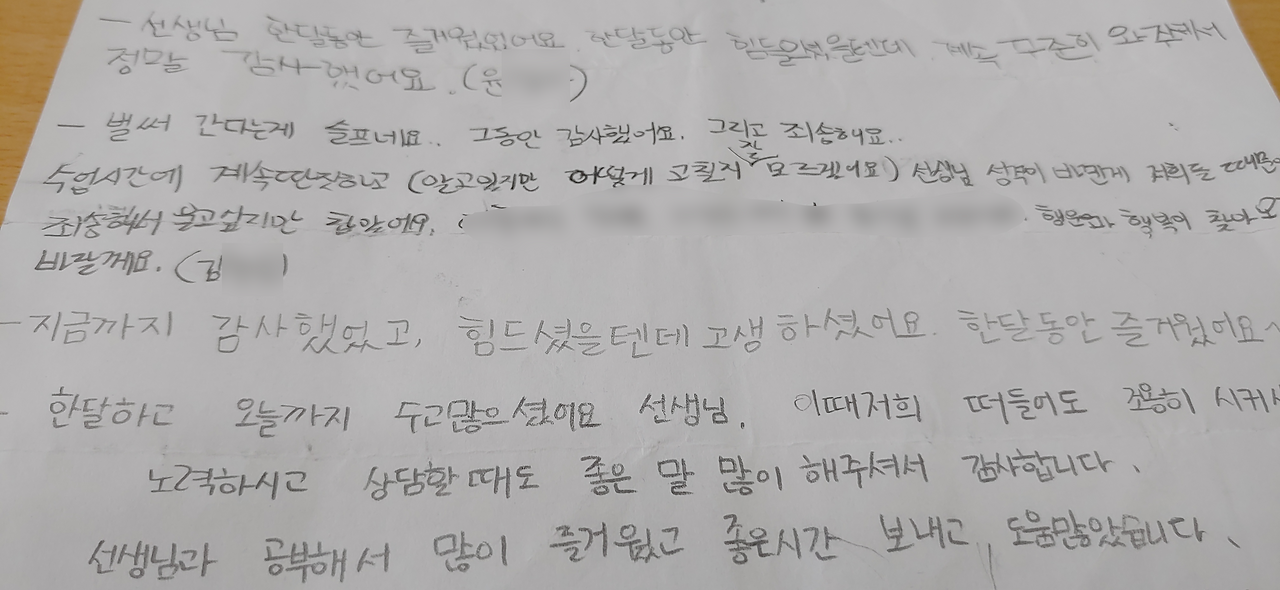 - 선생님 한달동안 즐거웠었어요. 한달동안 힘들으셨을텐데 계속 꾸준히 와주셔서
정말 감사했어요. (윤 )
- 벌써 간다는게 슬프네요.. 그동안 감사했어요. 그리고 죄송해요..
수업시간에 계속딴짓하고 (알고있지만 어떻게 고칠지 잘 모르겠어요) 선생님 성격이 바뀐게 저희들 때문에
죄송해서 울고싶지만 참았어요. ( 행운과 행복이 찾아오
바랄께요. (김 )
- 지금까지 감사했었고, 힘드셨을텐데 고생하셨어요. 한달동안 즐거웠어요~
- 한달하고 오늘까지 수고많으셨어요 선생님. 이때저희 떠들어도 조용히 시키시
노력하시고 상담할때도 좋은 말 많이 해주셔서 감사합니다.
선생님과 공부해서 많이 즐거웠고 좋은시간 보내고, 도움많았습니다.